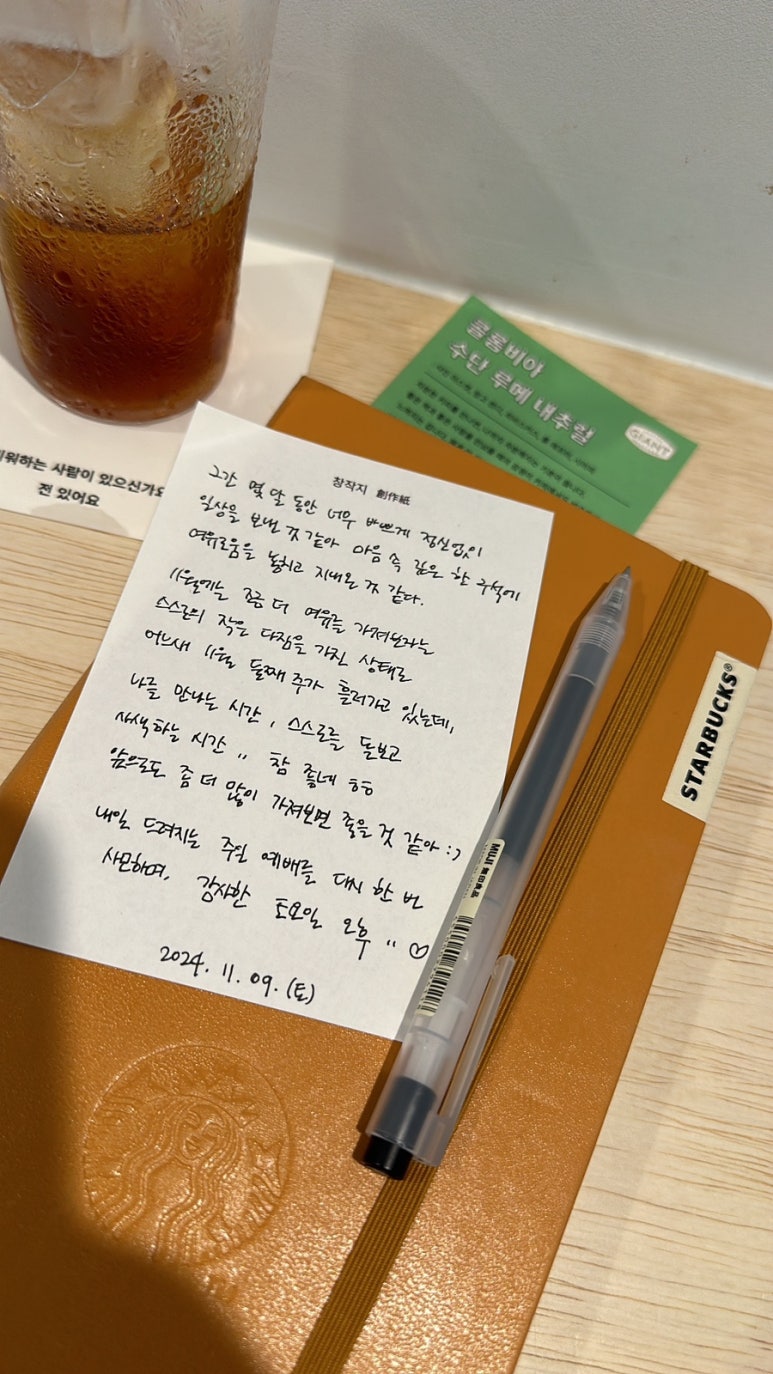 콜롬비아
수단 루메 내추럴
GIANT
워하는 사람이 있으신가요
전 있어요
창작지 創作紙
그간 몇 달 동안 너무 바쁘게 정신없이
일상을 보낸 것 같아 마음 속 깊은 한 구석에
여유로움을 놓치고 지내온 것 같다.
11월에는 조금 더 여유를 가져보자는
스스로의 작은 다짐을 가진 상태로
어느새 11월 둘째 주가 흘러가고 있는데,
나를 만나는 시간, 스스로를 돌보고
사색하는 시간 " 참 좋네 ㅎㅎ
앞으로도 좀 더 많이 가져보면 좋을 것 같아 :)
내일 드려지는 주일 예배를 다시 한 번
사모하며, 감사한 토요일 오후 " ♡
2024. 11. 09. (토)
STARBUCKS®
MUJI 無印良品